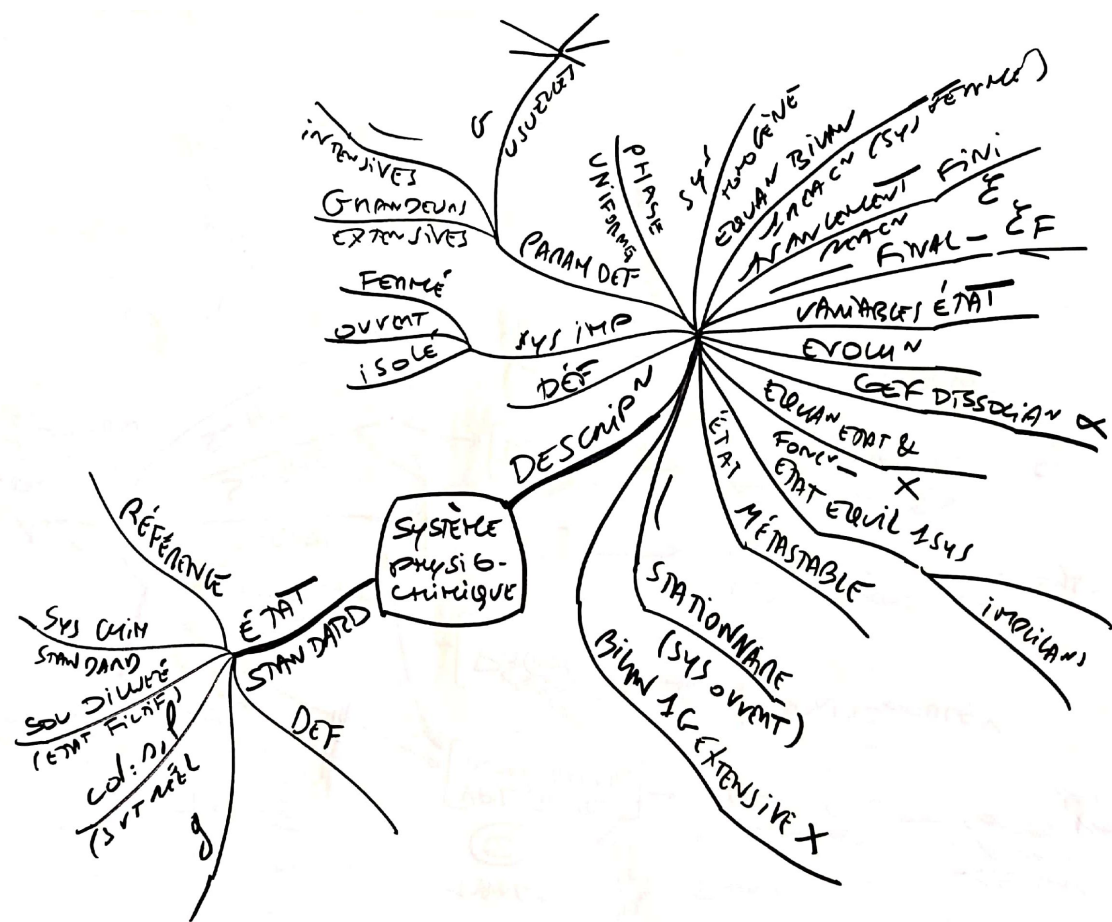 SYSTÈME
PHYSICO-
CHIMIQUE
DESCRIPN
DÉF
SYS IMP
FERMÉ
OUVERT
ISOLÉ
PARAM DEF
GRANDEURS
INTENSIVES
EXTENSIVES
G
USUELLES
PHASE
UNIFORME
SYS
HOMOGÈNE
EQUAN BILAN
1 REACN (SYS FERMÉ)
AVANCEMENT FINI
REACN
ξ
FINAL - ξF
VARIABLES ÉTAT
EVOLUN
COEF DISSOCIAN α
EQUAN ETAT &
FONCN - X
ETAT EQUIL 1SYS
IMPLICANS
ÉTAT
MÉTASTABLE
STATIONNAIRE
(SYS OUVERT)
BILAN 1G EXTENSIVE X
ÉTAT
STANDARD
RÉFÉRENCE
SYS CHIM
STANDARD
SOL DILUÉE
(ETAT FICTIF)
cd: s, l
(SVT RÉEL
g
DEF